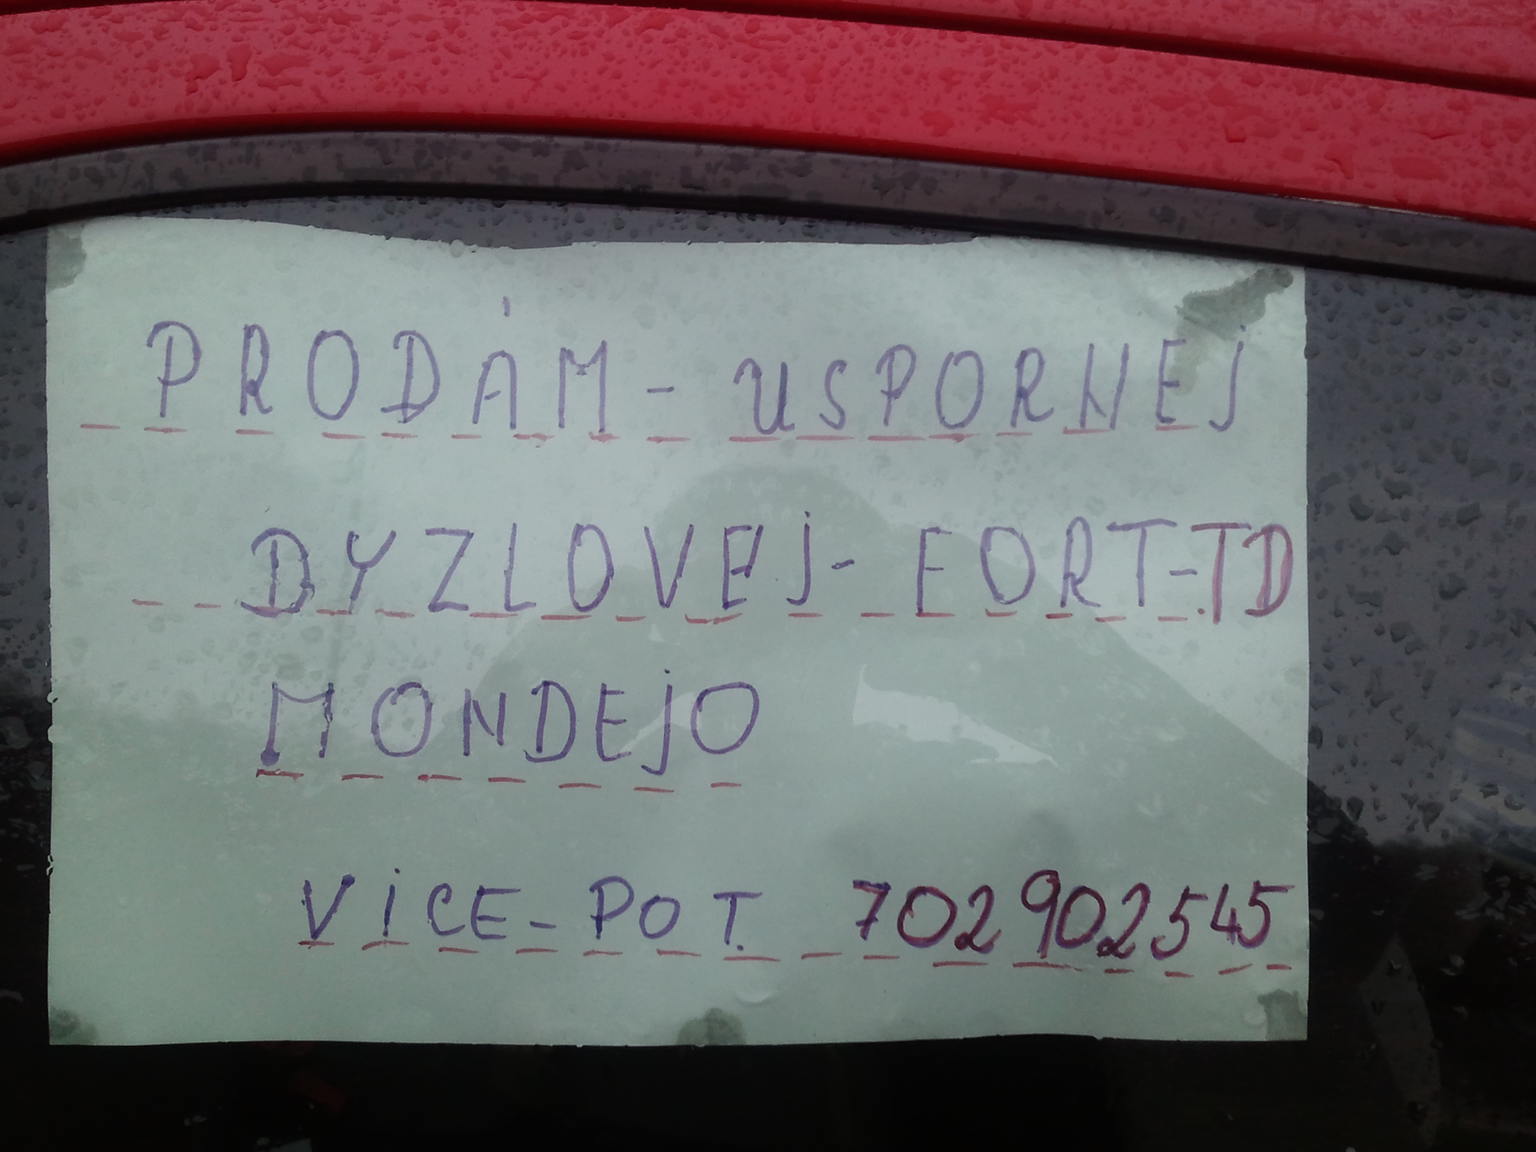 PRODÁM - USPORNEJ
DYZLOVEJ - FORT-TD
MONDEJO
VÍCE - POT. 702902545